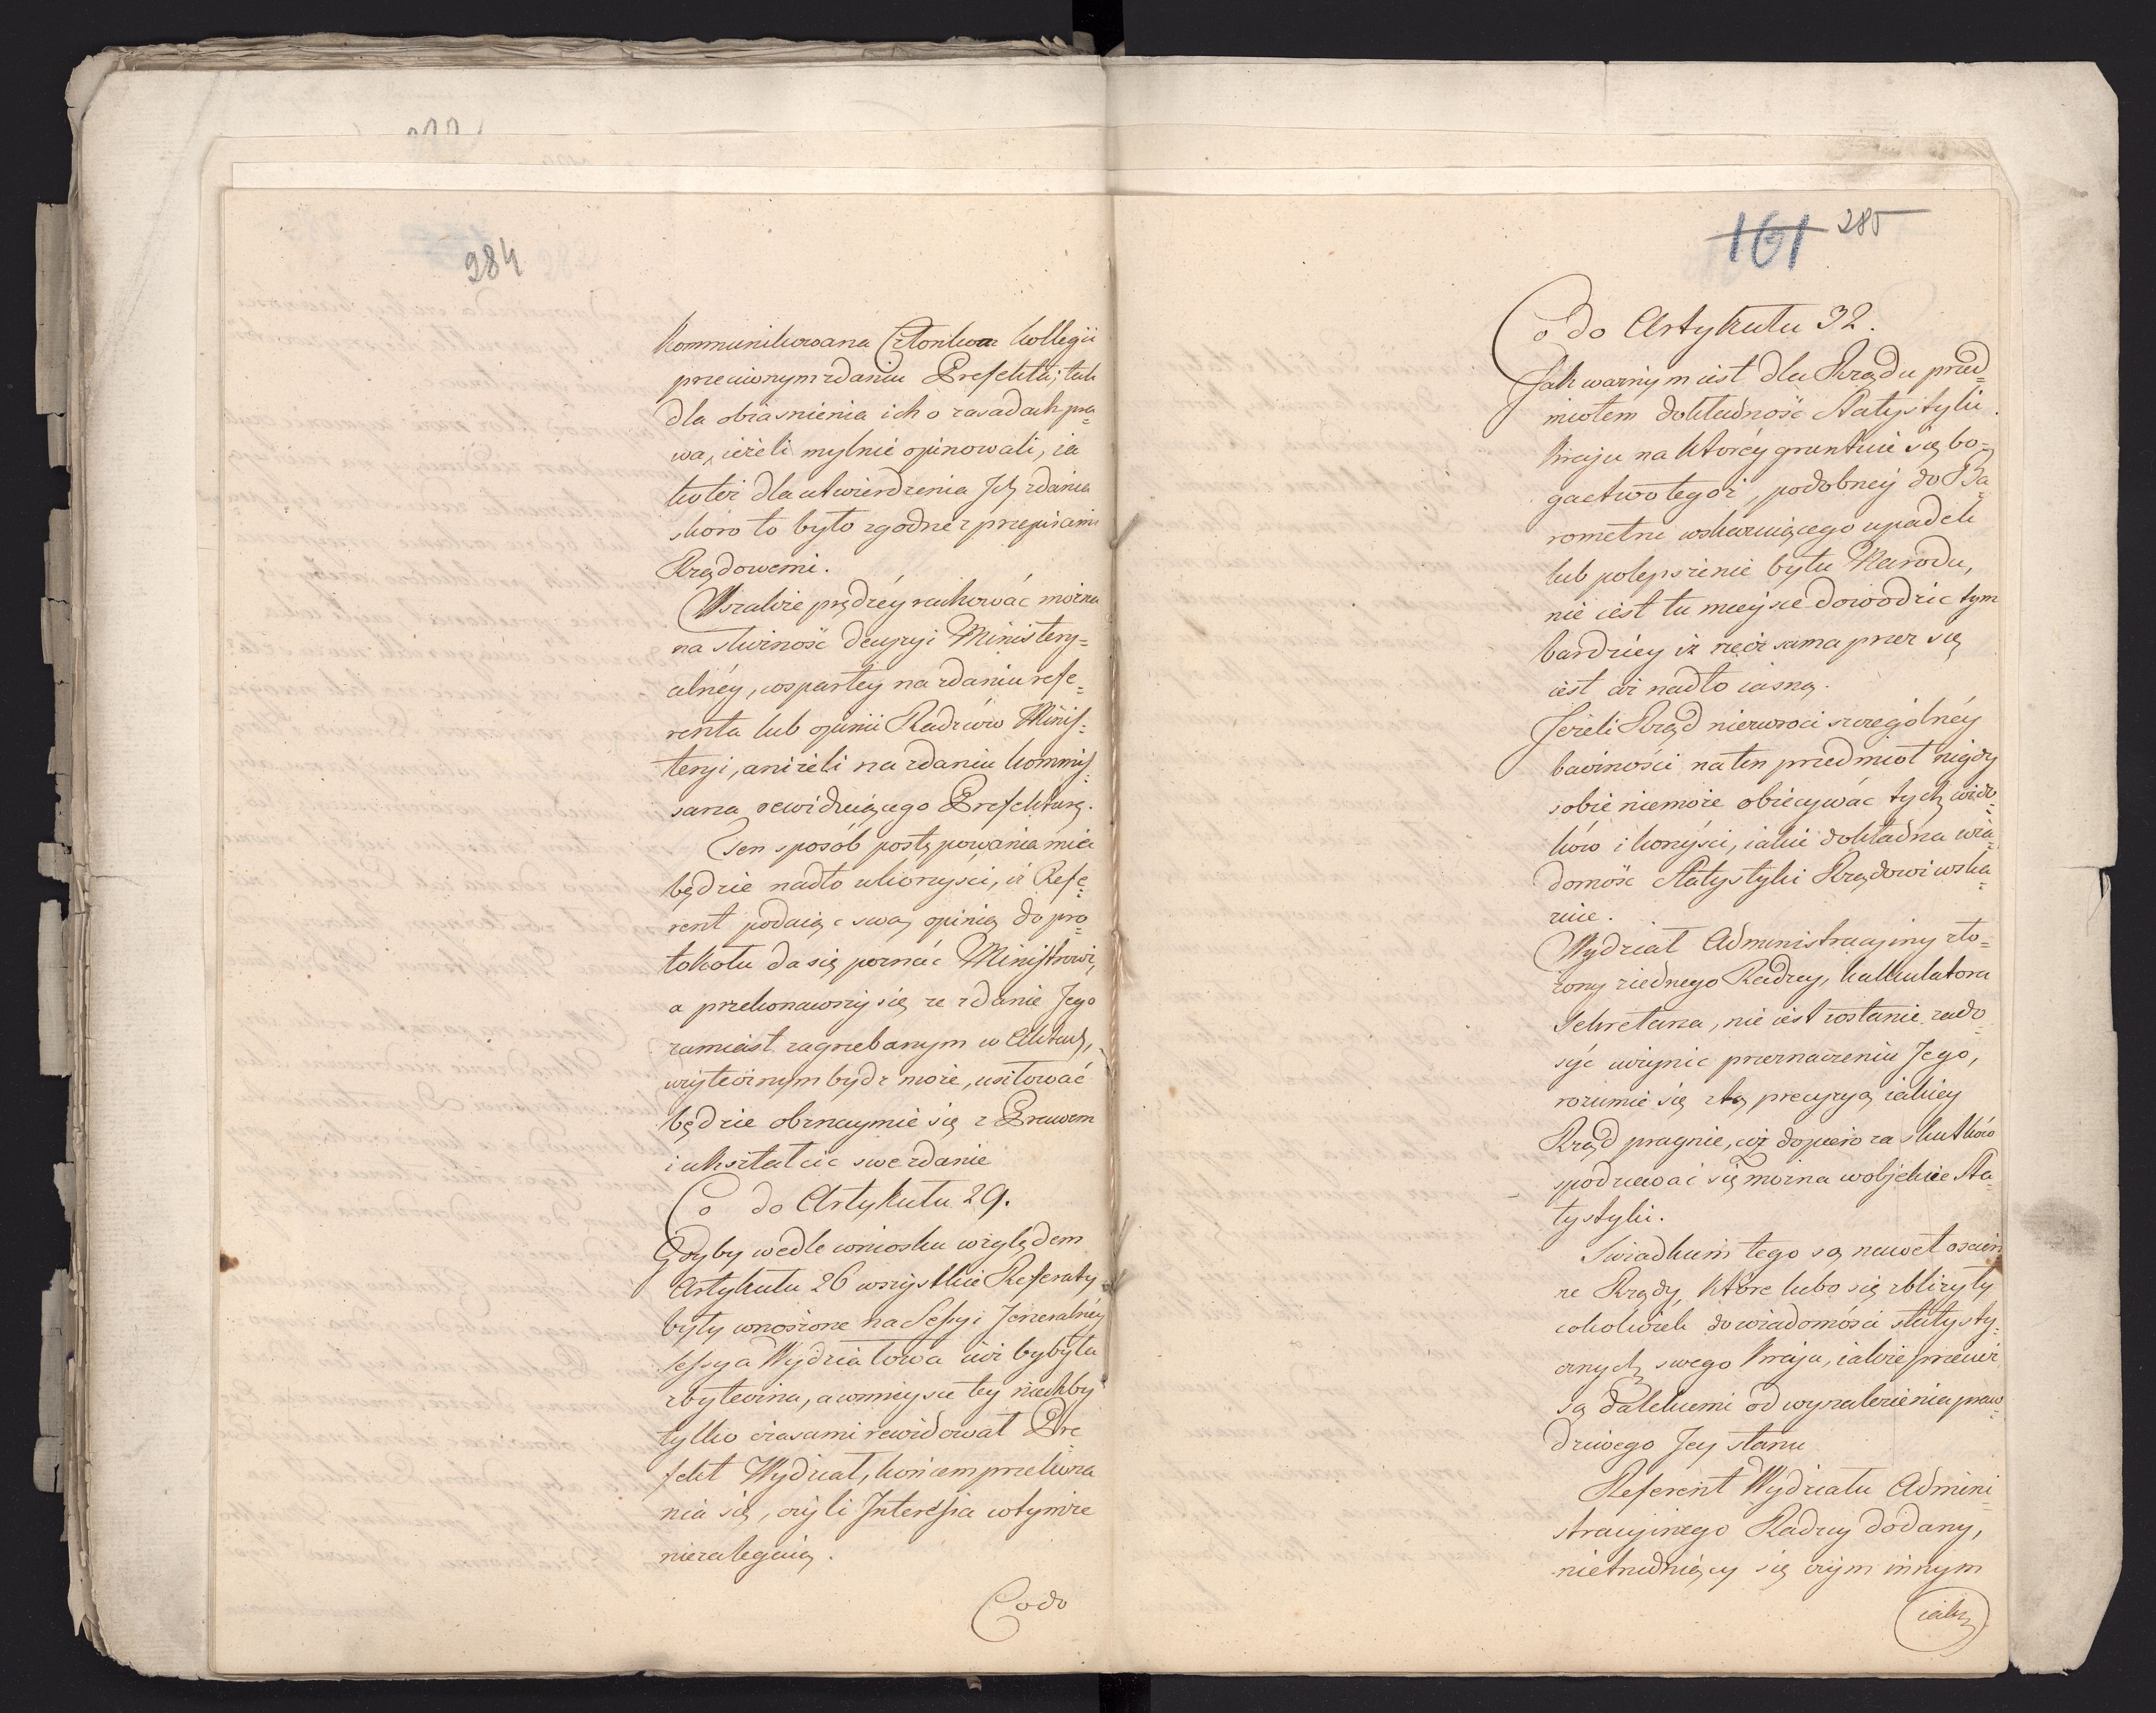 284
Kommunikowana Członkom Kollegii
przeciwnym zdaniu Prefekta; tak
dla obiasnienia ich o zasadach pra=
wa, ieżeli mylnie opinowali, ia
koteż dla utwierdzenia Ich zdania
skoro to było zgodne z przepisami
Rządowemi.
Wszakże prędzéy rachować można
na słuszność decyzyi Ministery=
alnéy, wspartey na zdaniu refe=
renta lub opinii Radzców Minis=
teryi, aniżeli na zdaniu kommis=
sarza rewiduiącego Prefekturę.
Ten sposób postępowania mieć
będzie nadto ukorzyści, iż Refe=
rent podaiąc swą opinią do pro=
tokołu da się poznać Ministrowi,
a przekonawszy się że zdanie Jego
zamiast zagrzebanym w Aktach,
użytecznym bydź może, usiłować
będzie obznaymić się z Prawem
i ukształcić swe zdanie
Co do Artykułu 29.
Gdyby wedle wniosku względem
Artykułu 26 wszystkie Referaty
były wnoszone na Sessyi Jeneralnéy
Sessya Wydziałowa iuż byłyby
zbyteczna, a w mieysce tey niechby
tylko czasami rewidował Pre
fekt Wydział, końcem przekona
nia się, czyli Interessa w tymże
niezalegaią.
Co do
161 285
Co do Artykułu 32.
Jak ważnym iest dla Rządu przed=
miotem dokładność Statystyki
Kraju na któréy gruntuie się bo=
gactwo tegoż, podobney do Ba=
rometru wskazuiącego upadek
lub polepszenie bytu Narodu,
nie iest tu mieysce dowodzić tym
bardziéy iż rzecz sama przez się
iest aż nadto iasną.
Jeżeli Rząd niezwroci szczególnéy
baczności na ten przedmiot nigdy
sobie niemoże obiecywać tych wido=
ków i korzyści, iakie dokładna wia=
domość Statystyki Rządowi wska=
zuie.
Wydział Administracyiny zło=
żony z iednego Radzcy, kalkulatora
Sekretarza, nie iest w stanie zado=
syć uczynić przeznaczeniu Jego,
rozumie się z tą precyzyą iakiey
Rząd pragnie, cóż dopiero za skutków
spodziewać się można w objekcie Sta=
tystyki.
Swiadkiem tego są nawet oscien
ne Rządy, które lubo się zbliżyły
cokolwiek do wiadomości statysty=
cznych swego Kraju, iakże przecież
są dalekiemi od wynalezienia praw=
dziwego Jey stanu
Referent Wydziału Admini=
stracyinego Radzcy dodany,
nietrudniący się czym innym
iak